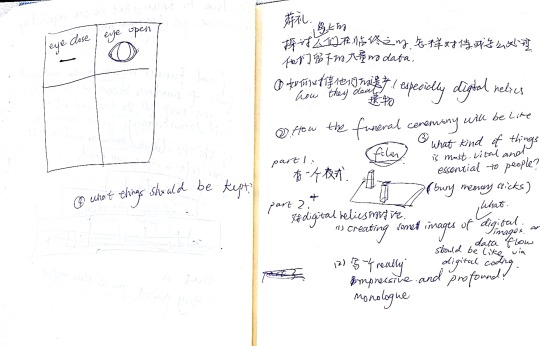 eye close
eye open
④ what things should be kept?
葬礼.
探讨人们在临终之时,怎样对待或怎么处理
他们留下的大量的data.
① 如何对待他们的遗产 / especially digital relics
how they deal
遗物
② How the funeral ceremony will be like
③ what kind of things
is most vital and
essential to people?
part 1.
film
有一个仪式
(bury memory sticks)
part 2.
digital relics
what
(1) creating some images of digital
images or
data flow
should be like via
digital coding.
(2) 写一个really
impressive and profound
monologue